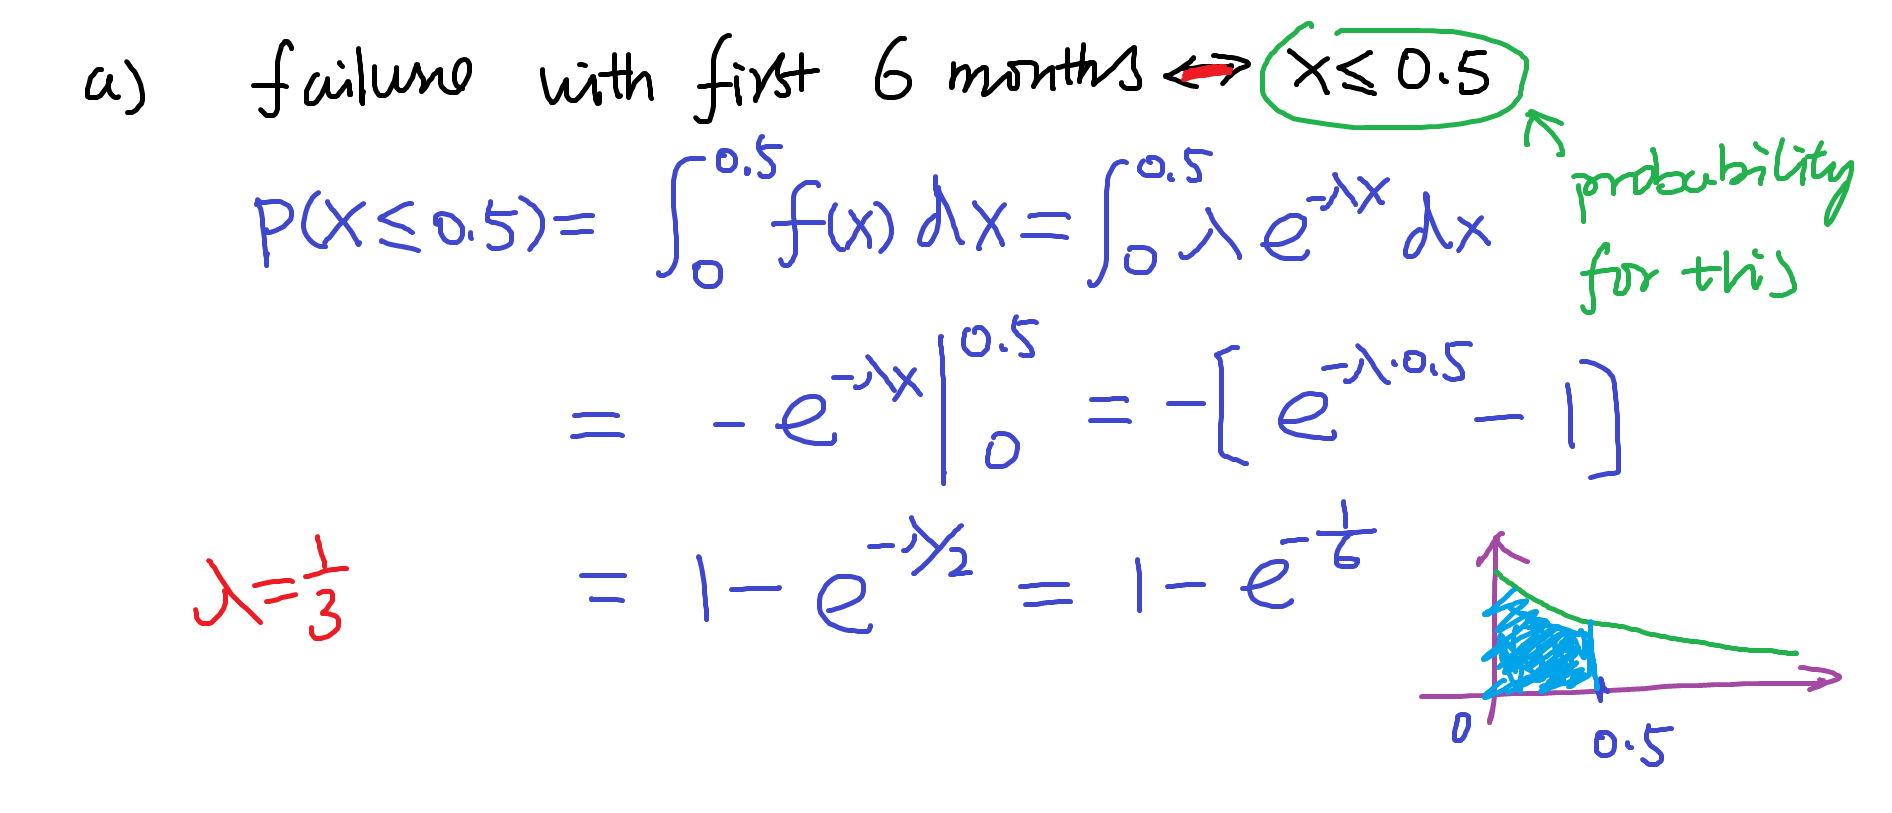 a) failure with first 6 months ↔ X ≤ 0.5
probability
for this
P(X ≤ 0.5) = ∫₀^0.5 f(x) dx = ∫₀^0.5 λ e^(-λx) dx
= - e^(-λx) |₀^0.5 = - [ e^(-λ·0.5) - 1 ]
λ = 1/3
= 1 - e^(-λ/2) = 1 - e^(-1/6)
0
0.5